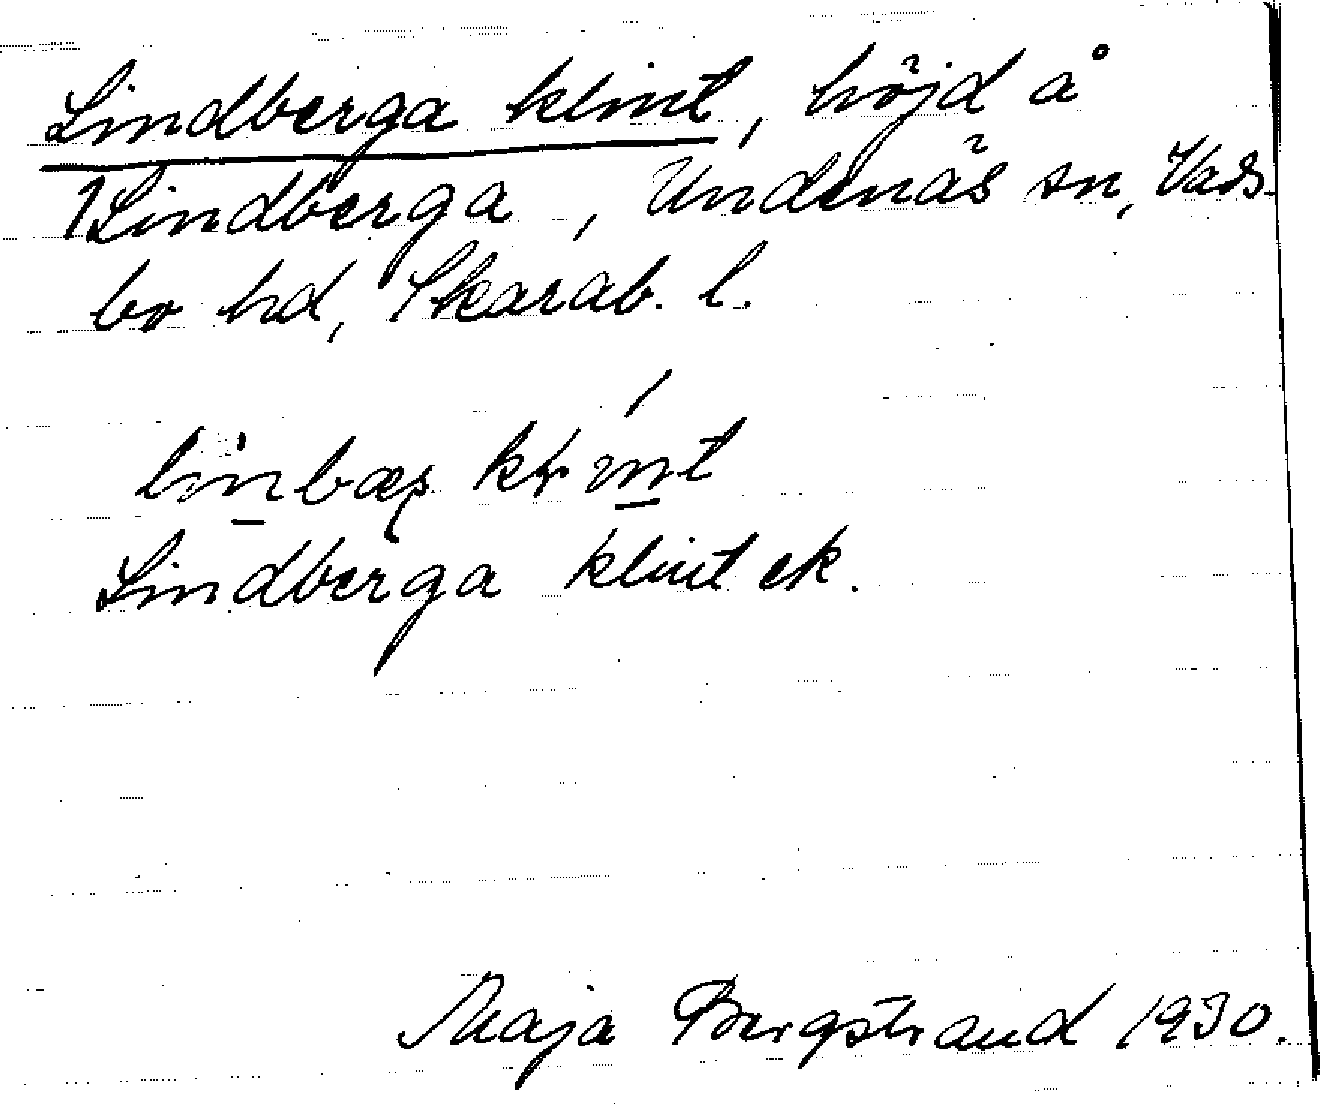 Lindberga klint, höjd å
1 Lindberga, Undenäs sn, Vads-
bo hd, Skarab. l.
Lindberga klint ek.
Maja Bergstrand 1930.